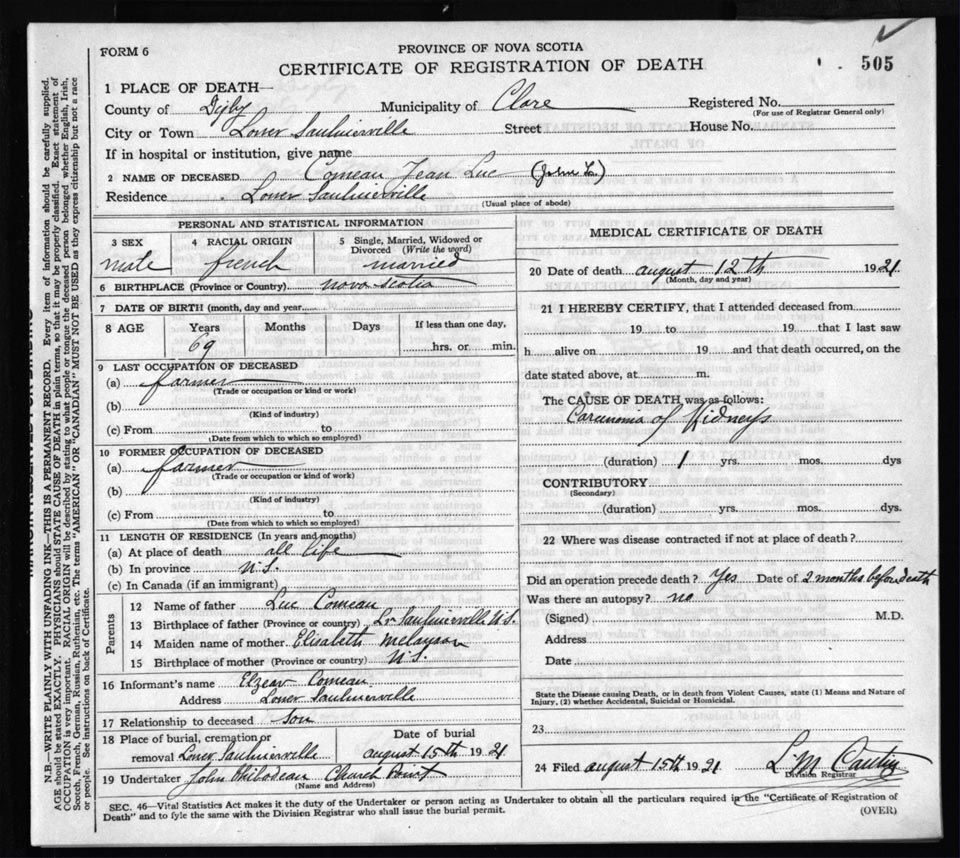 FORM 6
PROVINCE OF NOVA SCOTIA
CERTIFICATE OF REGISTRATION OF DEATH
505
1 PLACE OF DEATH—
County of Digby Municipality of Clare Registered No.
(For use of Registrar General only)
City or Town Lower Saulnierville Street House No.
If in hospital or institution, give name
2 NAME OF DECEASED Comeau Jean Luc (John L.)
Residence Lower Saulnierville
(Usual place of abode)
PERSONAL AND STATISTICAL INFORMATION
3 SEX 4 RACIAL ORIGIN 5 Single, Married, Widowed or Divorced (Write the word)
male french married
6 BIRTHPLACE (Province or Country) nova scotia
7 DATE OF BIRTH (month, day and year)
8 AGE Years Months Days If less than one day,
69 hrs. or min.
9 LAST OCCUPATION OF DECEASED
(a) farmer
(Trade or occupation or kind or work)
(b)
(Kind of industry)
(c) From to
(Date from which to which so employed)
10 FORMER OCCUPATION OF DECEASED
(a) farmer
(Trade or occupation or kind of work)
(b)
(Kind of industry)
(c) From to
(Date from which to which so employed)
11 LENGTH OF RESIDENCE (In years and months)
(a) At place of death all life
(b) In province N.S.
(c) In Canada (if an immigrant)
Parents
12 Name of father Luc Comeau
13 Birthplace of father (Province or country) Lr Saulnierville N.S.
14 Maiden name of mother Elisabeth Melanson
15 Birthplace of mother (Province or country) N.S.
16 Informant's name Elzear Comeau
Address Lower Saulnierville
17 Relationship to deceased son
18 Place of burial, cremation or removal Lower Saulnierville
Date of burial august 15th 1921
19 Undertaker John Thibodeau Church Point
(Name and Address)
MEDICAL CERTIFICATE OF DEATH
20 Date of death august 12th 1921
(Month, day and year)
21 I HEREBY CERTIFY, that I attended deceased from
19 to 19 that I last saw
h alive on 19 and that death occurred, on the
date stated above, at m.
The CAUSE OF DEATH was as follows:
Carcinoma of Kidneys
(duration) 1 yrs. mos. dys
CONTRIBUTORY
(Secondary)
(duration) yrs. mos. dys.
22 Where was disease contracted if not at place of death?
Did an operation precede death? Yes Date of 2 months before death
Was there an autopsy? no
(Signed) M.D.
Address
Date
State the Disease causing Death, or in death from Violent Causes, state (1) Means and Nature of
Injury, (2) whether Accidental, Suicidal or Homicidal.
23
24 Filed august 15th 1921 L M
Division Registrar
SEC. 46—Vital Statistics Act makes it the duty of the Undertaker or person acting as Undertaker to obtain all the particulars required in the "Certificate of Registration of
Death" and to fyle the same with the Division Registrar who shall issue the burial permit.
(OVER)
N.B.—WRITE PLAINLY WITH UNFADING INK—THIS IS A PERMANENT RECORD. Every item of information should be carefully supplied.
AGE should be stated EXACTLY. PHYSICIANS should STATE CAUSE OF DEATH in plain terms, so that it may be properly classified. Exact statement of
OCCUPATION is very important. RACIAL ORIGIN will be described by stating to what people or tongue the deceased person belonged whether English, Irish,
Scotch, French, German, Russian, Ruthenian, etc. The terms "AMERICAN" OR "CANADIAN" MUST NOT BE USED as they express citizenship but not a race
or people. See instructions on back of Certificate.